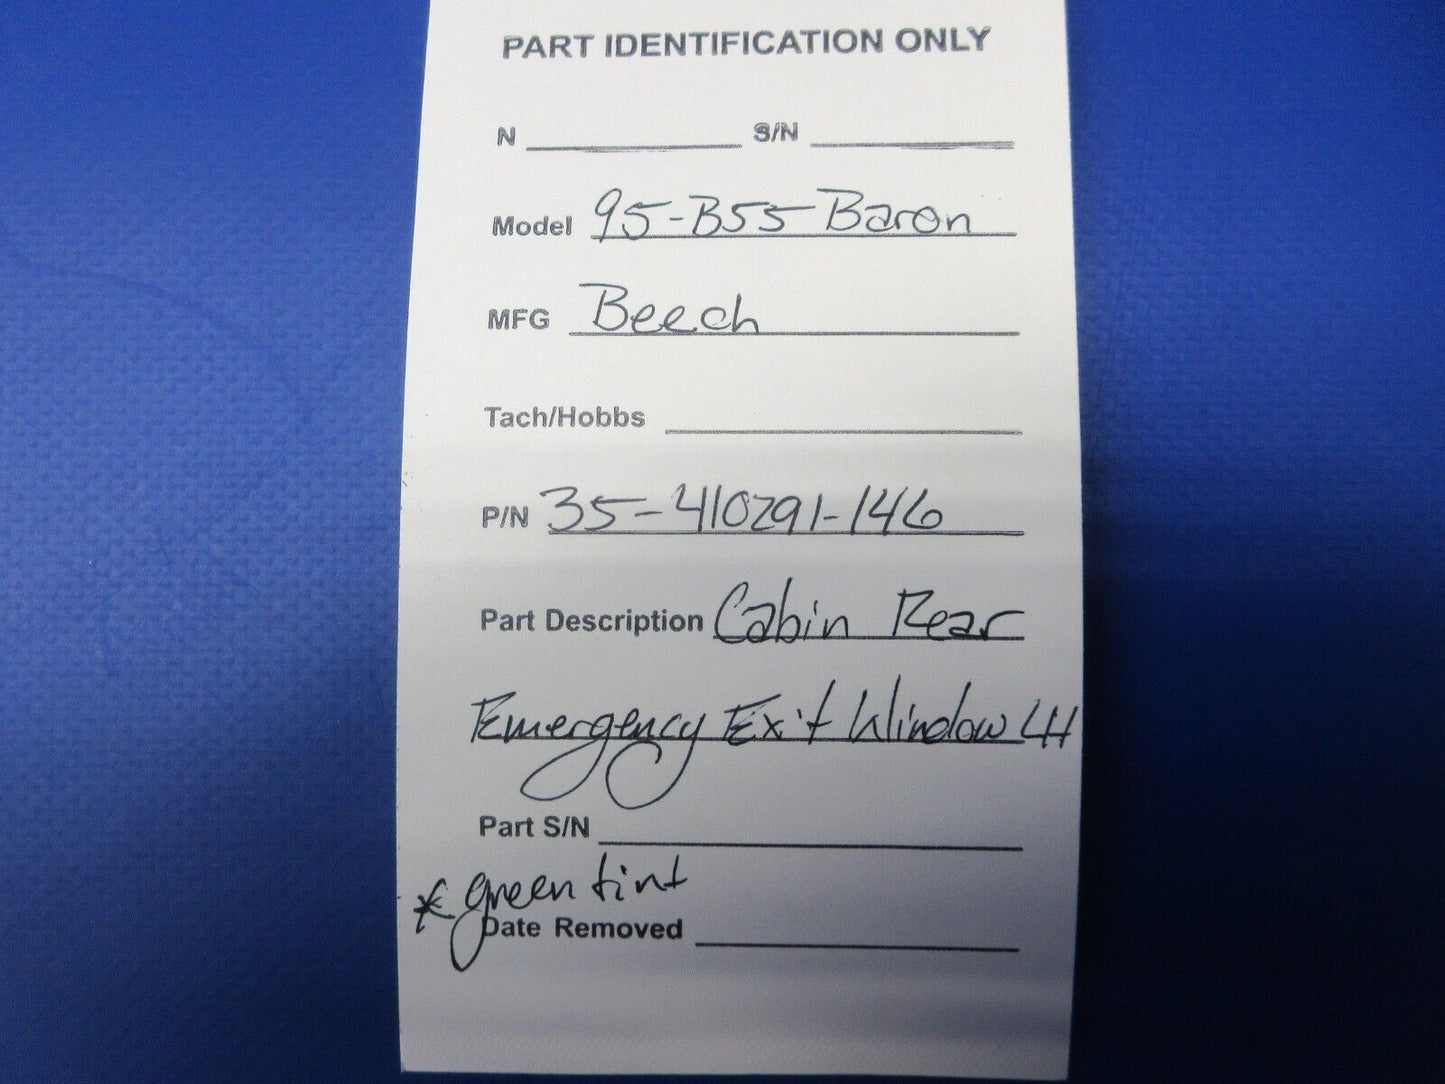 PART IDENTIFICATION ONLY
N S/N
Model 95-B55 Baron
MFG Beech
Tach/Hobbs
P/N 35-410291-146
Part Description Cabin Rear
Emergency Exit Window LH
Part S/N
* green tint
Date Removed